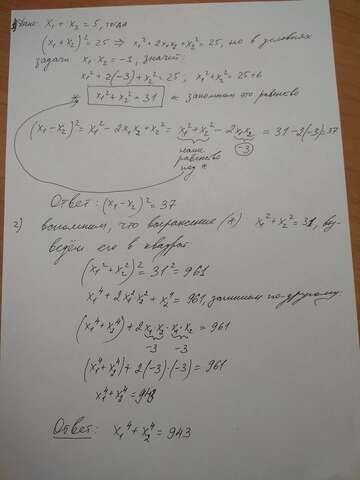 x₁ + x₂ = 5, тогда
(x₁ + x₂)² = 25 ⇒ x₁² + 2x₁x₂ + x₂² = 25, но в условиях
задачи x₁ · x₂ = -3, значит:
x₁² + 2(-3) + x₂² = 25; x₁² + x₂² = 25+6
* x₁² + x₂² = 31 * запомним это равенство
(x₁ - x₂)² = x₁² - 2x₁x₂ + x₂² = x₁² + x₂² - 2x₁x₂ = 31 - 2(-3) = 37
наше равенство под *
-3
Ответ: (x₁ - x₂)² = 37
2) вспомним, что выражение (*): x₁² + x₂² = 31, воз-
ведём его в квадрат.
(x₁² + x₂²)² = 31² = 961
x₁⁴ + 2x₁²x₂² + x₂⁴ = 961, запишем по-другому
(x₁⁴ + x₂⁴) + 2x₁x₂ · x₁ · x₂ = 961
-3 -3
(x₁⁴ + x₂⁴) + 2(-3) · (-3) = 961
x₁⁴ + x₂⁴ = 943
Ответ: x₁⁴ + x₂⁴ = 943